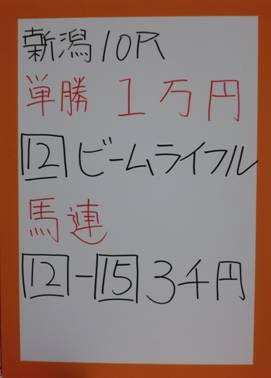 新潟10R
単勝 1万円
12 ビームライフル
馬連
12-15 3千円